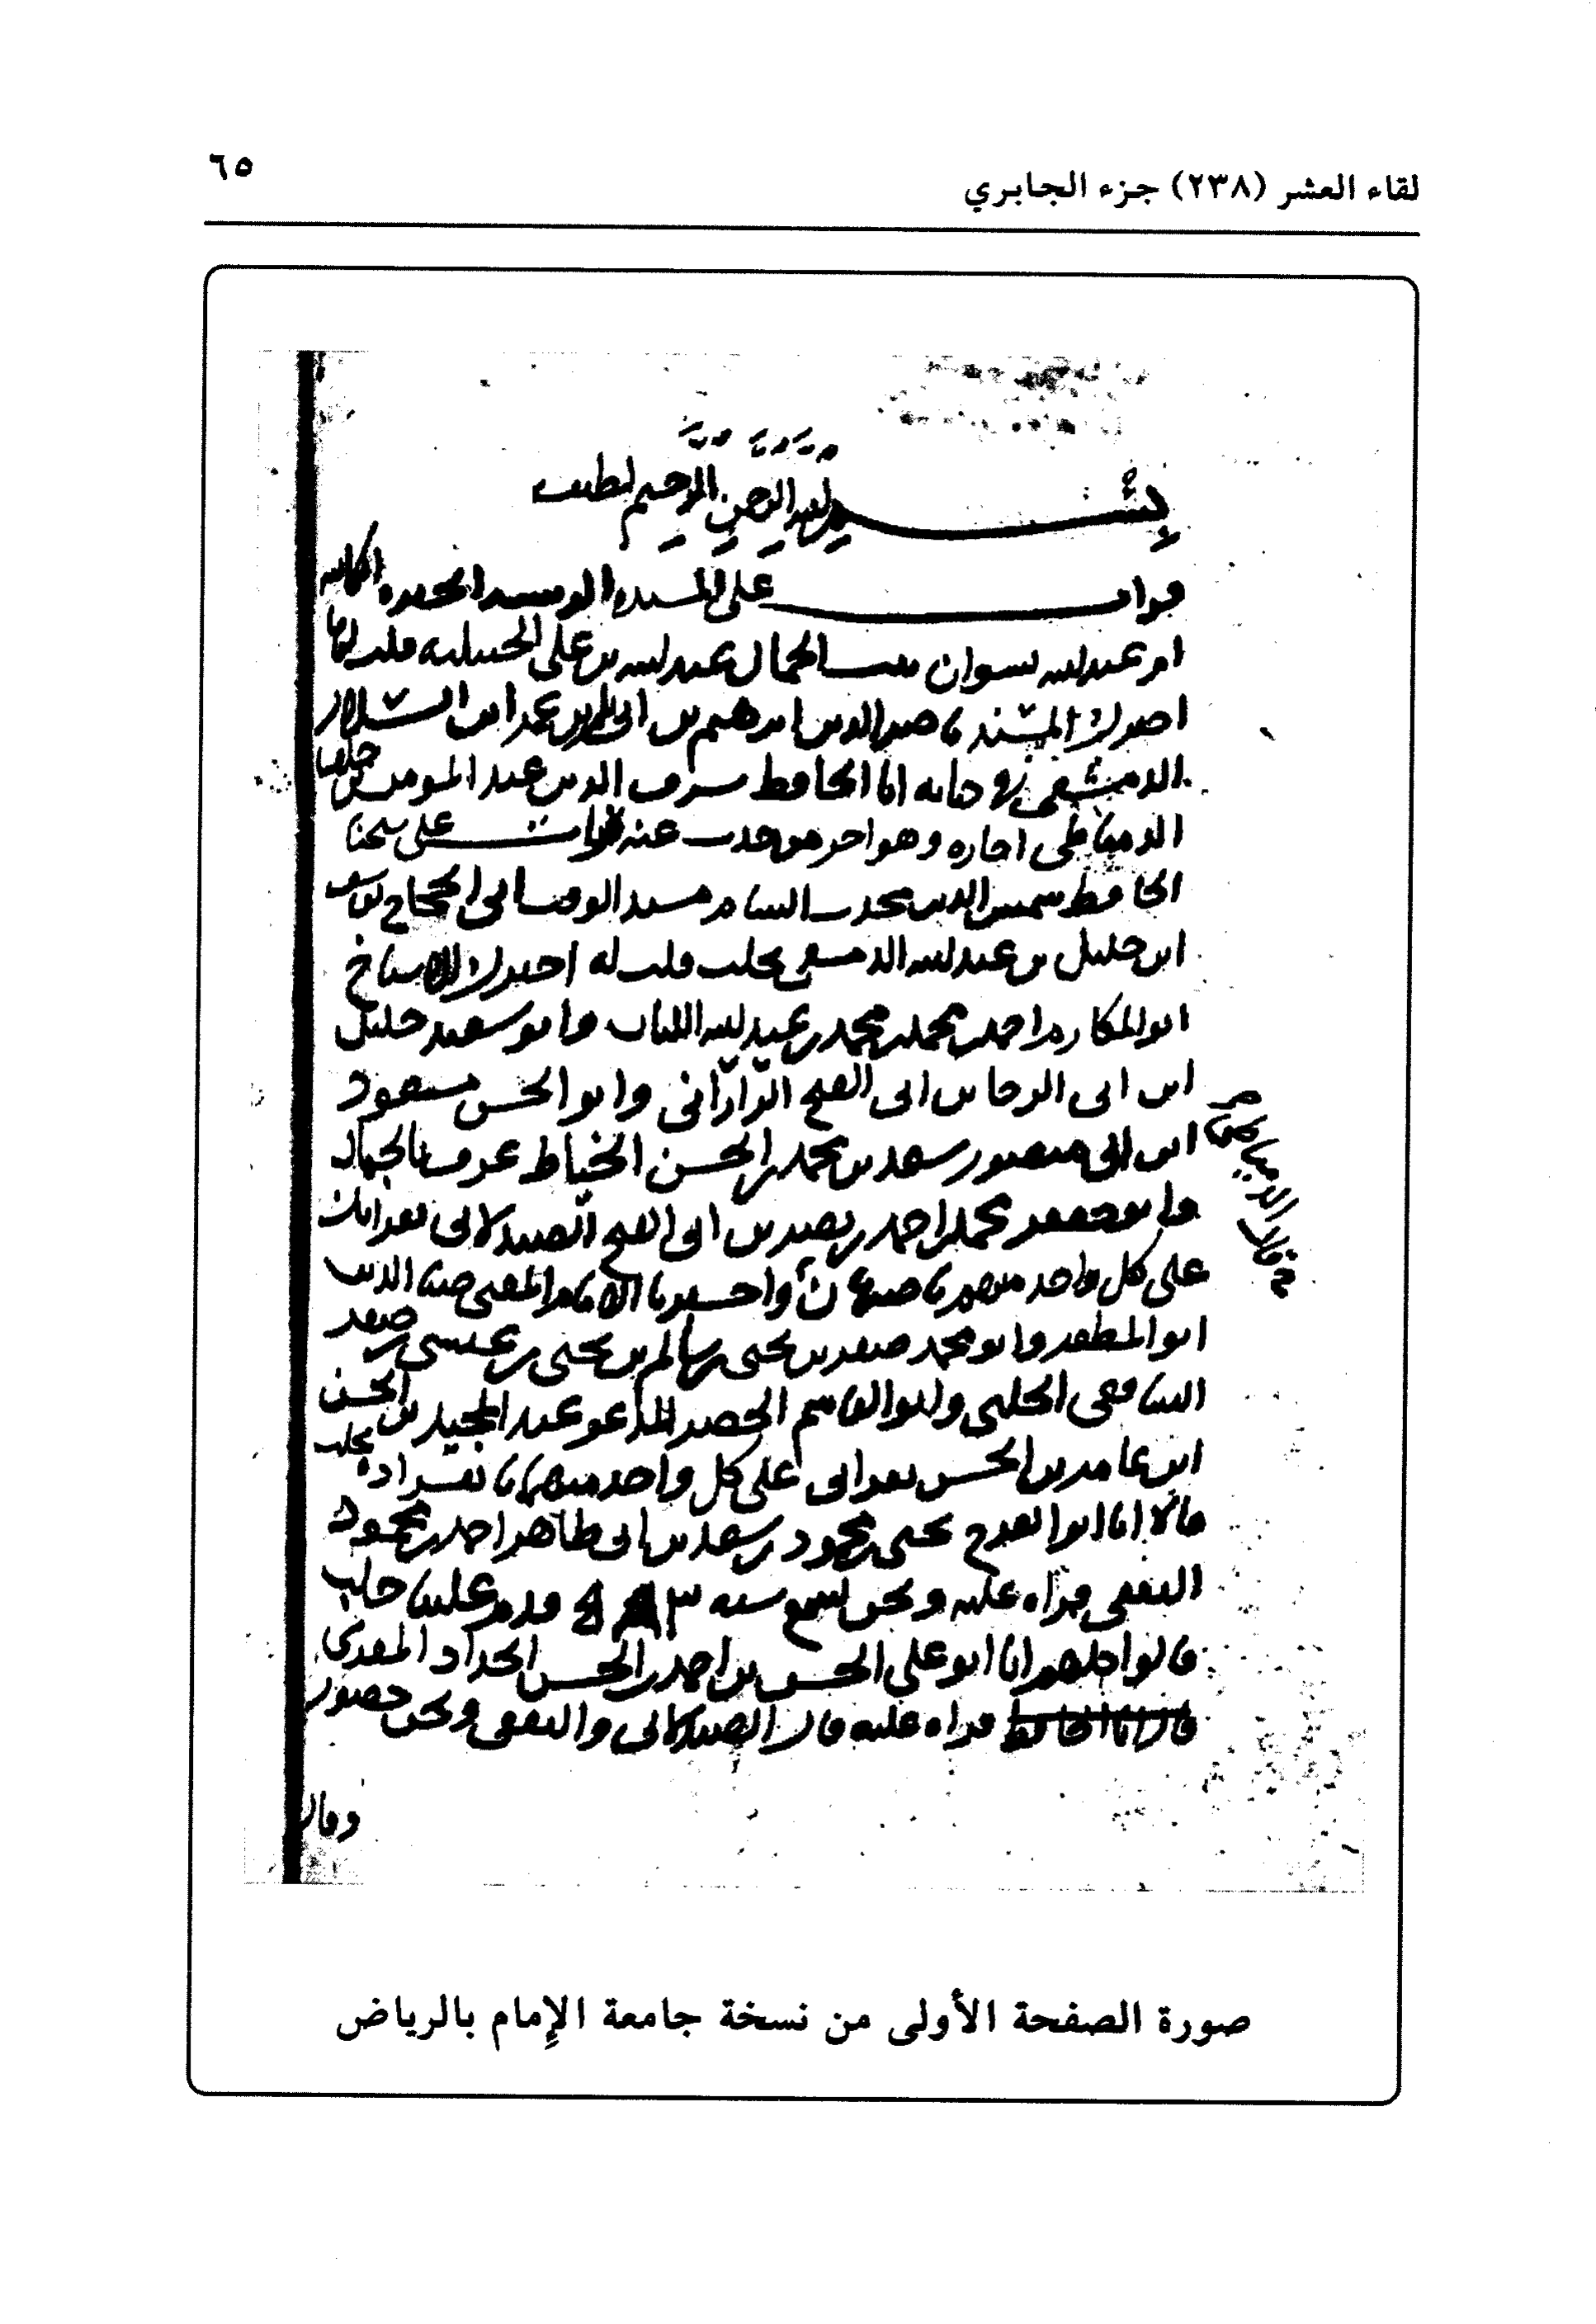 لقاء العشر (٢٣٨) جزء الجابري
٦٥
بسم الله الرحمن الرحيم لطيف
قرات على المسنده الاصيله
ام عبد الله نسوان بنت الجمال عبد الله بن علي الحنبليه قلت لها
اخبرك المسند ناصر الدين ابرهيم بن ابي بكر بن عمر ابن السلار
الدمشقي في كتابه انا الحافظ شرف الدين عبد المومن بن خلف
الدمياطي اجازه وهو اخر من حدث عنه قرات على شيخنا
الحافظ شمس الدين محدث الشام مسند الوقت ابي الحجاج يوسف
ابن خليل بن عبد الله الدمشقي بحلب قلت له اخبرك الاشياخ
ابو المكارم احمد بن محمد بن محمد بن عبد الله اللبان وابو سعيد خليل
ابن ابي الرجا بن ابي الفتح الرّاراني وابو الحسن مسعود
ابن ابي منصور سعد بن محمد بن الحسن الخياط عرف بالجمال
وابو جعفر محمد بن احمد بن نصر بن ابي الفتح الصيدلاني بقراتك
على كل واحد منهم باصبهان واخبرنا الامام المفتي ضيا الدين
ابو المظفر وابو محمد صقر بن يحيى بن سالم بن يحيى بن عيسى بن صقر
الشافعي الحلبي وابو القاسم الخضر المدعو عبد المجيد بن الحسن
ابن عامر بن الحسن بقراتي على كل واحد منهما بانفراده بحلب
قالا انا ابو الفرج يحيى بن محمود بن سعد بن ابي طاهر احمد بن محمود
الثقفي قراه عليه ونحن نسمع سنه قدم علينا حلب
قالوا كلهم انا ابو علي الحسن بن احمد بن الحسن الحداد المقري
قالا انا الحافظ قراه عليه قال الصيدلاني والثقفي ونحن حضور
وقال
قال الدمياطي
صورة الصفحة الأولى من نسخة جامعة الإمام بالرياض